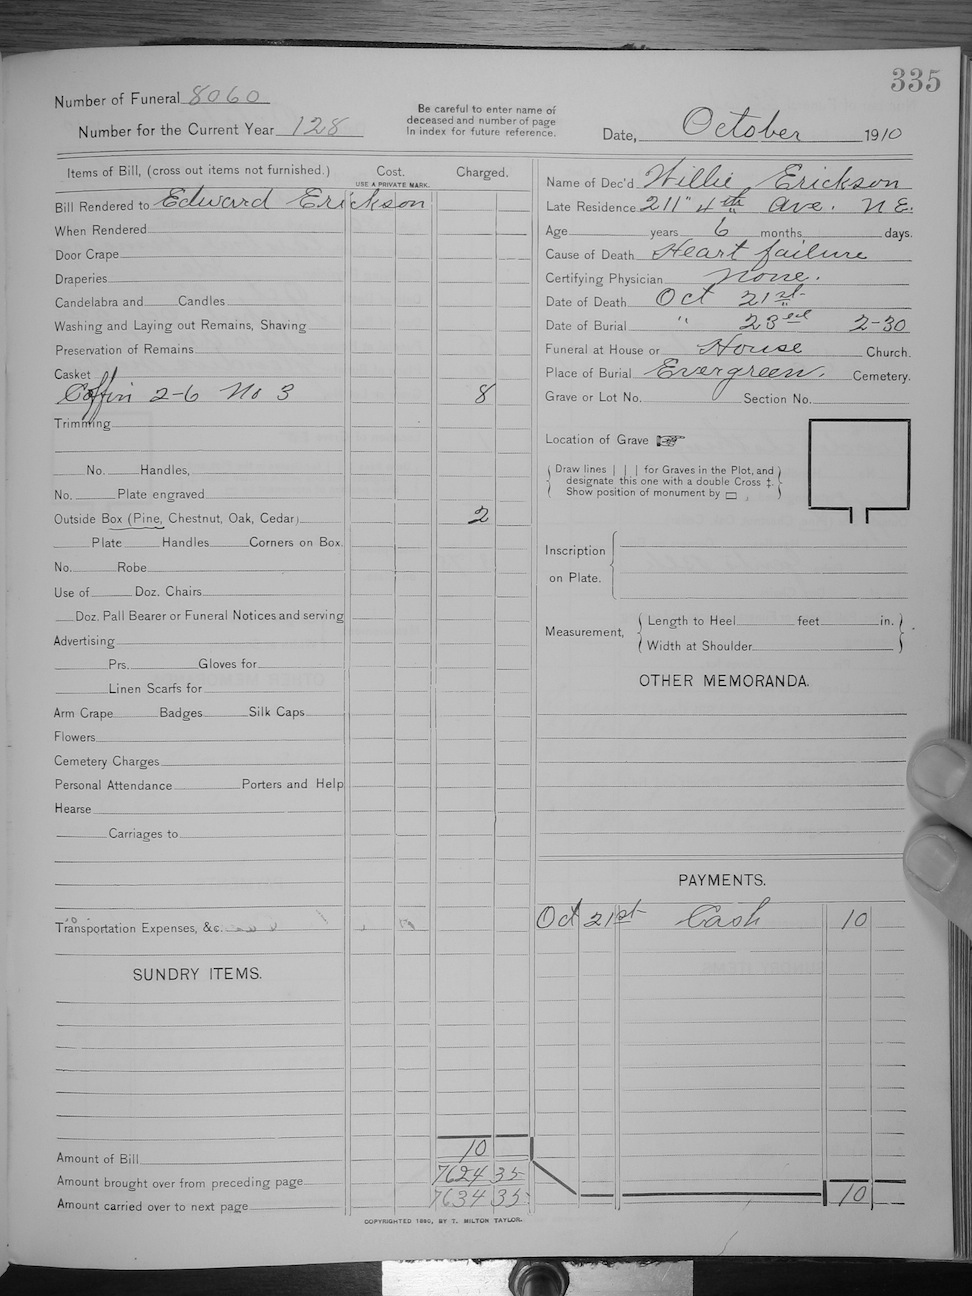 335
Number of Funeral 8060
Number for the Current Year 128
Be careful to enter name of
deceased and number of page
In index for future reference.
Date, October 1910
Items of Bill, (cross out items not furnished.) Cost. Charged.
USE A PRIVATE MARK.
Bill Rendered to Edward Erickson
When Rendered
Door Crape
Draperies
Candelabra and Candles
Washing and Laying out Remains, Shaving
Preservation of Remains
Casket
Coffin 2-6 No 3 8
Trimming
No. Handles,
No. Plate engraved
Outside Box (Pine, Chestnut, Oak, Cedar) 2
Plate Handles Corners on Box.
No. Robe
Use of Doz. Chairs
Doz. Pall Bearer or Funeral Notices and serving
Advertising
Prs. Gloves for
Linen Scarfs for
Arm Crape Badges Silk Caps
Flowers
Cemetery Charges
Personal Attendance Porters and Help
Hearse
Carriages to
Transportation Expenses, &c.
SUNDRY ITEMS.
Amount of Bill 10
Amount brought over from preceding page 7624 35
Amount carried over to next page 7634 35
Name of Dec'd Willie Erickson
Late Residence 211" 4th Ave. N E.
Age years 6 months days.
Cause of Death Heart failure
Certifying Physician None.
Date of Death Oct 21st
Date of Burial " 23rd 2-30
Funeral at House or House Church.
Place of Burial Evergreen. Cemetery.
Grave or Lot No. Section No.
Location of Grave ☞
Draw lines | | | for Graves in the Plot, and
designate this one with a double Cross ‡.
Show position of monument by ▭
Inscription
on Plate.
Measurement, Length to Heel feet in.
Width at Shoulder
OTHER MEMORANDA.
PAYMENTS.
Oct 21st Cash 10
10
COPYRIGHTED 1890, BY T. MILTON TAYLOR.